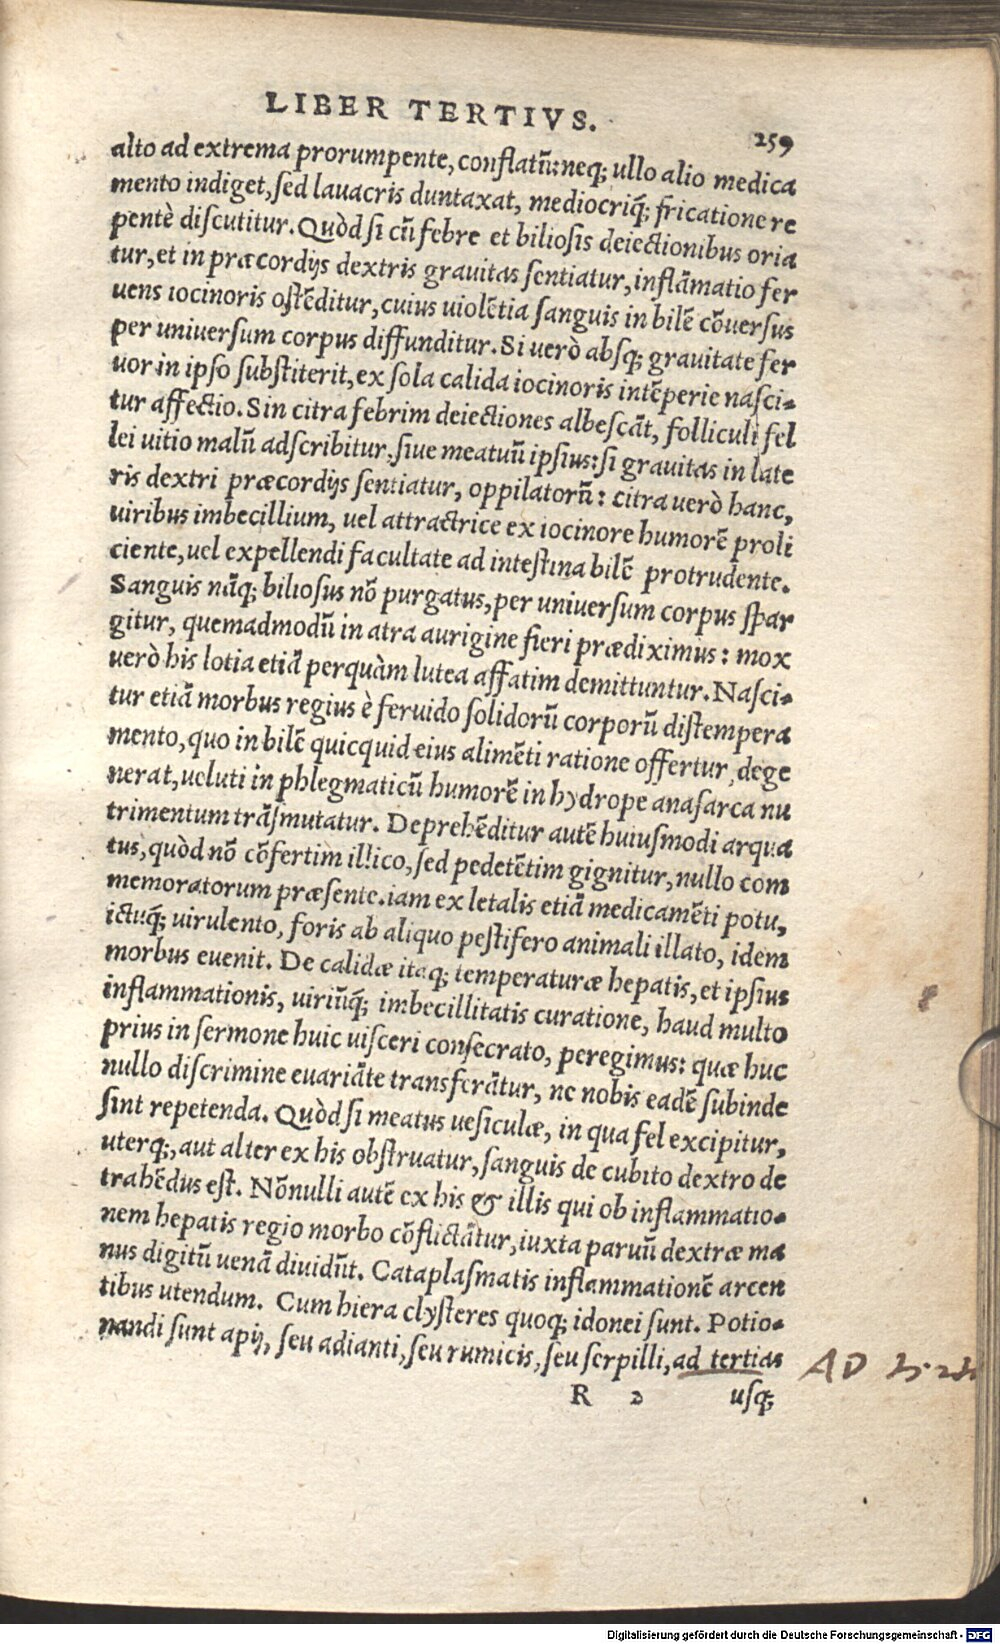 LIBER TERTIVS.
259
alto ad extrema prorumpente, conflatũ: neq; ullo alio medica
mento indiget, sed lauacris duntaxat, mediocriq́; fricatione re
pentè discutitur. Quòd si cũ febre et biliosis deiectionibus oria
tur, et in præcordijs dextris grauitas sentiatur, inflãmatio fer
uens iocinoris ostẽditur, cuius uiolẽtia sanguis in bilẽ cõuersus
per uniuersum corpus diffunditur. Si uerò absq; grauitate fer
uor in ipso substiterit, ex sola calida iocinoris intẽperie nasci-
tur affectio. Sin citra febrim deiectiones albescãt, folliculi fel
lei uitio malũ adscribitur, siue meatuũ ipsius: si grauitas in late
ris dextri præcordijs sentiatur, oppilatorũ: citra uerò hanc,
uiribus imbecillium, uel attractrice ex iocinore humorẽ proli
ciente, uel expellendi facultate ad intestina bilẽ protrudente.
Sanguis nãq; biliosus nõ purgatus, per uniuersum corpus spar
gitur, quemadmodũ in atra aurigine fieri prædiximus: mox
uerò his lotia etiã perquàm lutea affatim demittuntur. Nasci-
tur etiã morbus regius è feruido solidorũ corporũ distempera
mento, quo in bilẽ quicquid eius alimẽti ratione offertur, dege
nerat, ueluti in phlegmaticũ humorẽ in hydrope anasarca nu
trimentum trãsmutatur. Deprehẽditur autẽ huiusmodi arqua
tus, quòd nõ cõfertim illico, sed pedetẽtim gignitur, nullo com
memoratorum præsente. iam ex letalis etiã medicamẽti potu,
ictuq́; uirulento, foris ab aliquo pestifero animali illato, idem
morbus euenit. De calidæ itaq; temperaturæ hepatis, et ipsius
inflammationis, uiriũq́; imbecillitatis curatione, haud multo
prius in sermone huic uisceri consecrato, peregimus: quæ huc
nullo discrimine euariãte transferãtur, ne nobis eadẽ subinde
sint repetenda. Quòd si meatus uesiculæ, in qua fel excipitur,
uterq;, aut alter ex his obstruatur, sanguis de cubito dextro de
trahẽdus est. Nõnulli autẽ ex his & illis qui ob inflammatio-
nem hepatis regio morbo cõflictãtur, iuxta paruũ dextræ ma
nus digitũ uenã diuidũt. Cataplasmatis inflammationẽ arcen
tibus utendum. Cum hiera clysteres quoq; idonei sunt. Potio-
nandi sunt apij, seu adianti, seu rumicis, seu serpilli, ad tertias
AD
R 2 usq;
Digitalisierung gefördert durch die Deutsche Forschungsgemeinschaft - DFG